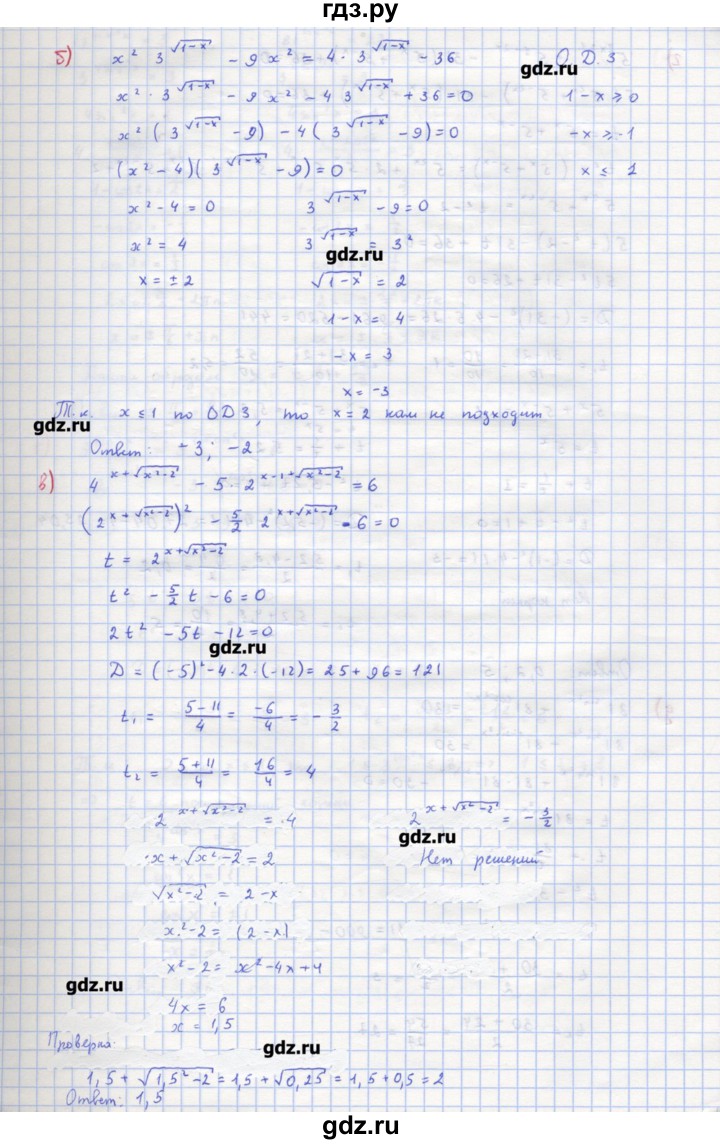 гдз.ру
б) x² 3^√(1-x) - 9x² = 4·3^√(1-x) - 36 О.Д.З
gdz.ru
x²·3^√(1-x) - 9x² - 4 3^√(1-x) + 36 = 0 1-x ≥ 0
x²(3^√(1-x) - 9) - 4(3^√(1-x) - 9) = 0 -x ≥ -1
(x² - 4)(3^√(1-x) - 9) = 0 x ≤ 1
x² - 4 = 0 3^√(1-x) - 9 = 0
x² = 4 3^√(1-x) = 3²
gdz.ru
x = ± 2 √(1-x) = 2
1 - x = 4
- x = 3
x = -3
Т.к. x ≤ 1 по ОДЗ, то x = 2 нам не подходит
gdz.ru
Ответ: -3; -2
в) 4^(x+√(x²-2)) - 5·2^(x-1+√(x²-2)) = 6
(2^(x+√(x²-2)))² - 5/2 2^(x+√(x²-2)) - 6 = 0
t = 2^(x+√(x²-2))
t² - 5/2 t - 6 = 0
2t² - 5t - 12 = 0
gdz.ru
D = (-5)² - 4·2·(-12) = 25 + 96 = 121
t₁ = (5-11)/4 = -6/4 = -3/2
t₂ = (5+11)/4 = 16/4 = 4
2^(x+√(x²-2)) = 4 2^(x+√(x²-2)) = -3/2
gdz.ru
x + √(x²-2) = 2 Нет решений
√(x²-2) = 2 - x
x² - 2 = (2-x)
x² - 2 = x² - 4x + 4
gdz.ru
4x = 6
x = 1,5
Проверка:
gdz.ru
1,5 + √(1,5²-2) = 1,5 + √0,25 = 1,5 + 0,5 = 2
Ответ: 1,5
gdz.ru